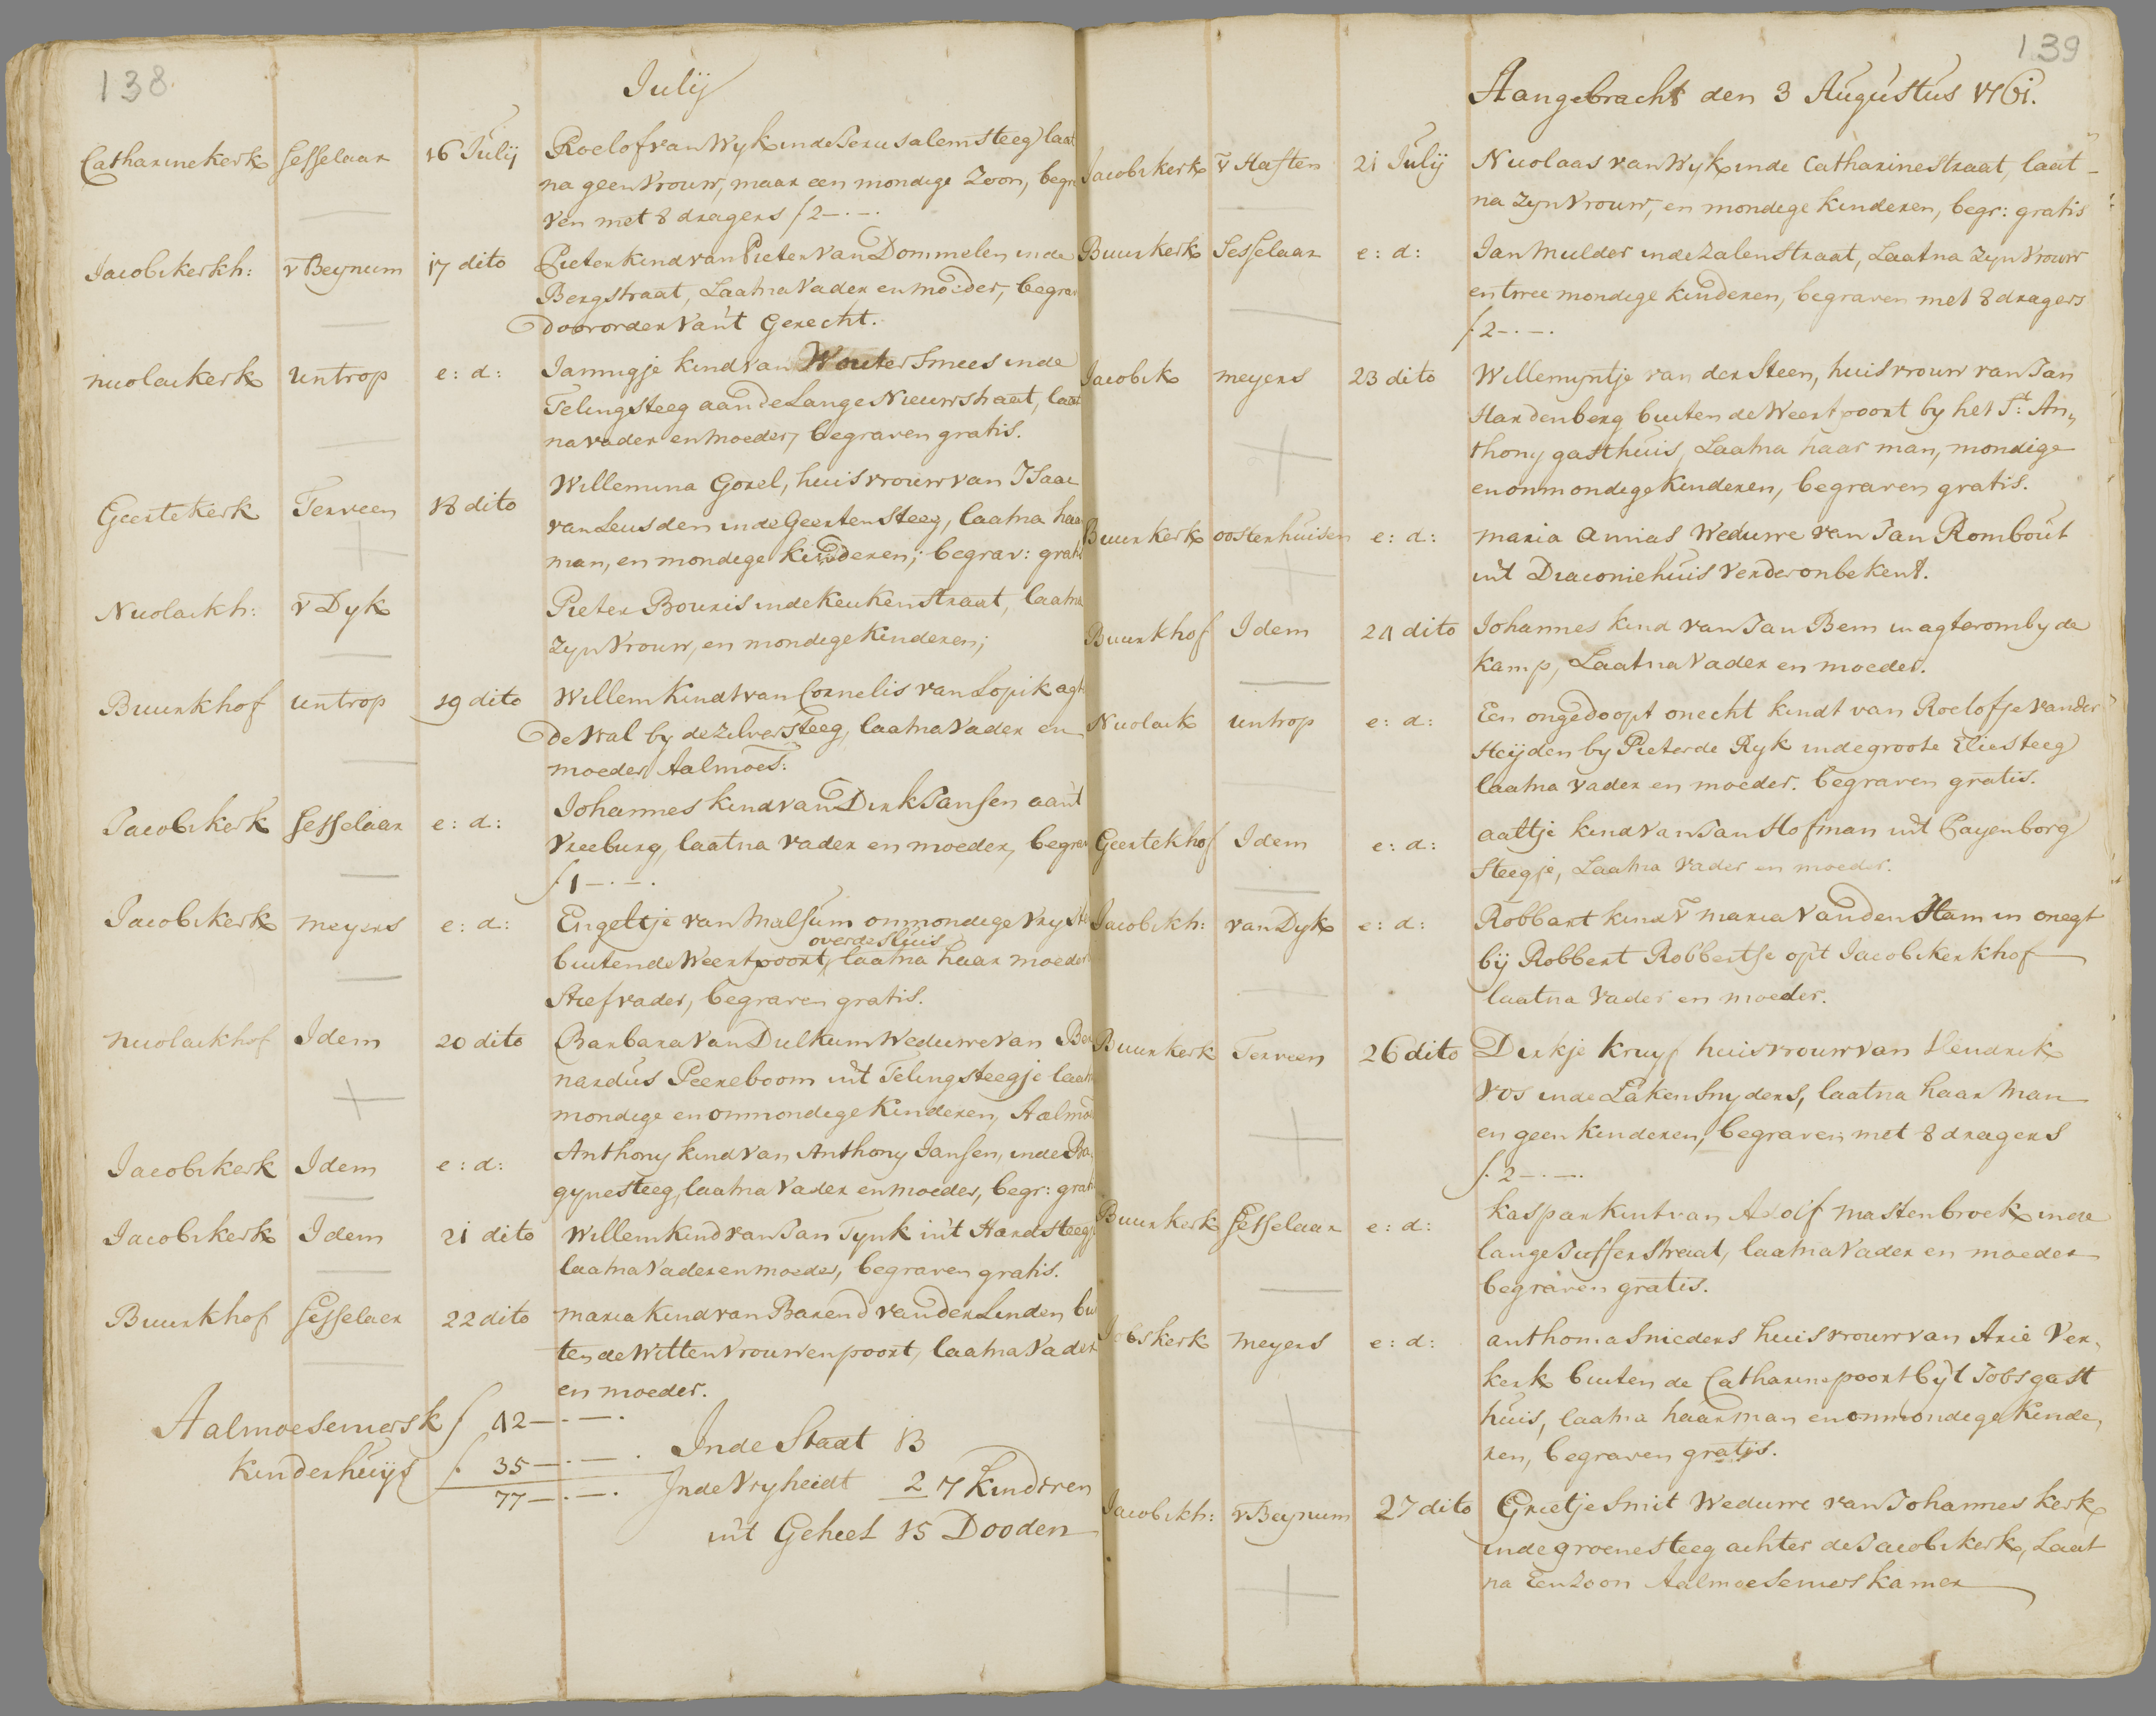 138.
July
Catharinekerk Sesselaar 16 July Roelof van Wyk in de Jerusalemsteeg laat
na geen vrouw, maar een mondige Zoon, begra
ven met 8 dragers f 2-.-.
Jacobikerkh: v Beynum 17 dito Pieter kind van Pieter van Dommelen in de
Bergstraat, Laatna Vader en moeder, begra
door order van't Gerecht.
nicolaikerk untrop e: d: Jannigje kind van Wouter Smees in de
Telingsteeg aan de Lange Nieuwstraat, laat
na vader en moeder, begraven gratis.
Geertekerk Terveen 18 dito Willemina Gorel, huisvrouw van Isaac
van Leusden in de Geertensteeg, laatna haa
man, en mondige kinderen; begrav: grat
Nicolaikh: v Dyk Pieter Bouris in de Keukenstraat, laatna
zyn vrouw, en mondige kinderen;
Buurkhof untrop 19 dito Willem kindt van Cornelis van Lopik agt
de Wal by de zilversteeg, laatna Vader en
moeder, Aalmoes:
Jacobikerk Sesselaar e: d: Johannes kind van Dirk Jansen aan't
Vreeburg, laatna vader en moeder, begra
f 1-.-.
Jacobikerk meyers e: d: Engeltje van Malsum onmondige vryste
over de sluis
buiten de Weertpoort, laatna haar moeder
Stiefvader, begraven gratis.
nicolaikhof Idem 20 dito Barbara van Dulkum Weduwe van Ber
nardus Peereboom int Telingsteegje laat
mondige en onmondige kinderen, Aalmo
Jacobikerk Idem e: d: Anthony kind van Anthony Jansen, in de Ba
gynesteeg, laatna Vader en moeder, begr: grat
Jacobikerk Idem 21 dito Willem kind van Jan Tynk in't Hardsteegj
laatna Vader en moeder, begraven gratis.
Buurkhof Sesselaer 22 dito maria kind van Barend van der Linden bu
ten de Wittenvrouwenpoort, laatna Vader
en moeder.
Aalmoeseniersk f 42-.-.
Kinderhuijs f. 35-.-.
77-.-.
In de Stadt 13
In de Vryheidt 2 7 kinderen
int Geheel 15 Dooden
139
Aangebracht den 3 Augustus 1761.
Jacobikerk v Haften 21 July Nicolaas van Wyk in de Catharinestraat, laat
na zyn Vrouw, en mondige kinderen, begr: gratis
Buurkerk Sesselaar e: d: Jan Mulder in de Zalenstraat, Laatna zyn vrouw
en twee mondige kinderen, begraven met 8 dragers
f 2-.-.
Jacobik meyers 23 dito Willemyntje van der Steen, huisvrouw van Jan
Hardenberg buiten de Weertpoort by het St: An,,
thony gasthuis, Laatna haar man, mondige
en onmondige kinderen, begraven gratis.
Buurkerk oosterhuisen e: d: maria Amias Weduwe van Jan Rombout
int Diaconiehuis verder onbekent.
Buurkhof Idem 24 dito Johannes kind van Jan Bem in agterom by de
kamp, Laatna Vader en moeder.
Nicolaik untrop e: d: Een ongedoopt onecht kindt van Roelofje van der
Heijden by Pieter de Ryk in de groote Eliesteeg
laatna vader en moeder. begraven gratis.
Geertekhof Idem e: d: aaltje kind van Jan Hofman int Payenborg
steegje, Laatna Vader en moeder.
Jacobikh: van Dyk e: d: Robbart kind v maria van den Ham in onegt
bij Robbert Robbertse op't Jacobikerkhof
laatna Vader en moeder.
Buurkerk Terveen 26 dito Dirkje Kruyf huisvrouw van Hendrik
Vos in de Lakensnyders, laatna haar man
en geen kinderen, begraven met 8 dragers
f. 2-.-.
Buurkerk Sesselaar e: d: kaspar kint van Adolf Mastenbroek in de
lange Jufferstraat, laatna Vader en moeder
begraven gratis.
Jobskerk meyers e: d: anthoma Snieders huisvrouw van Arie Ver,
kerk buiten de Catharinepoort by't Jobsgast
huis, laatna haar man en onmondige kinde,
ren, begraven gratis.
Jacobikh: v Beynum 27 dito Grietje Smit Weduwe van Johannes kerk
in de groenesteeg achter de Jacobikerk, Laat
na Een zoon Aalmoesenierskamer